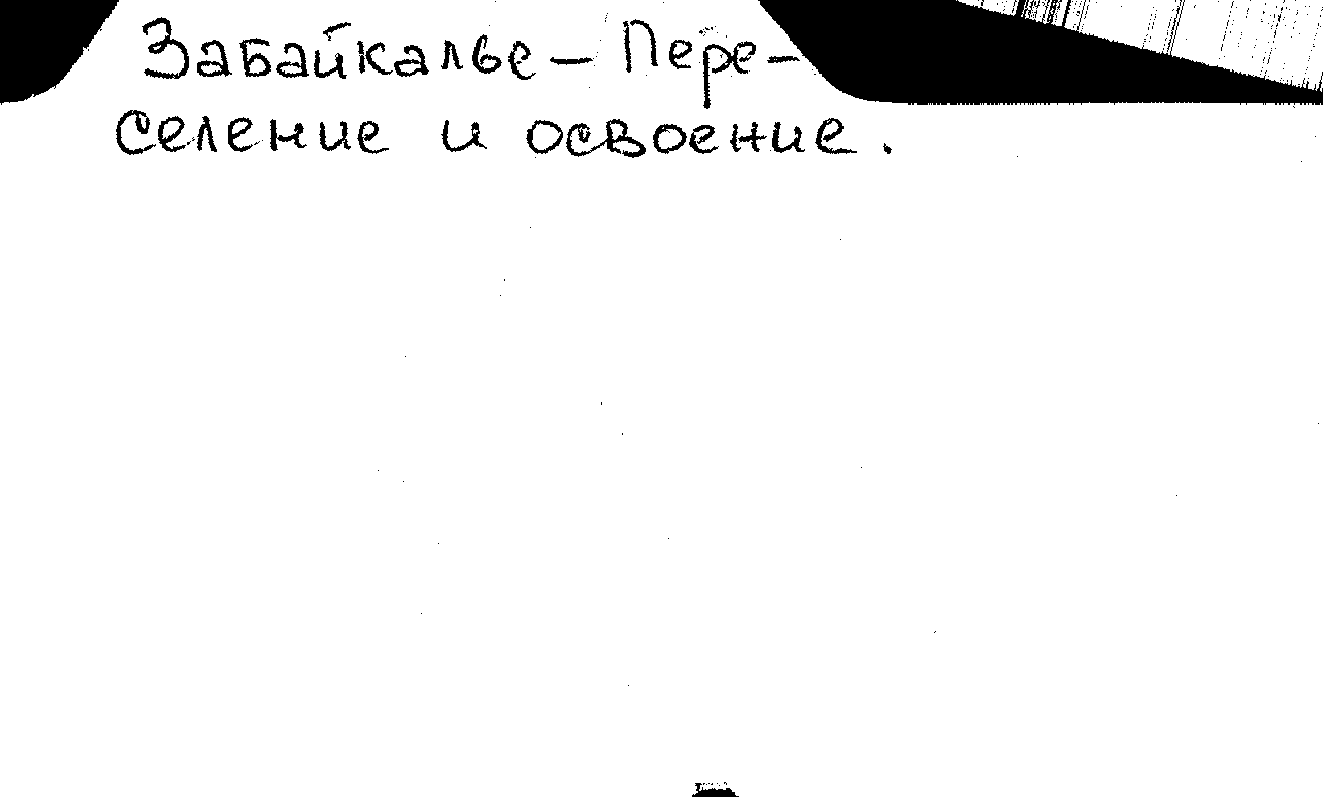 Забайкалье – Пере-
селение и освоение.